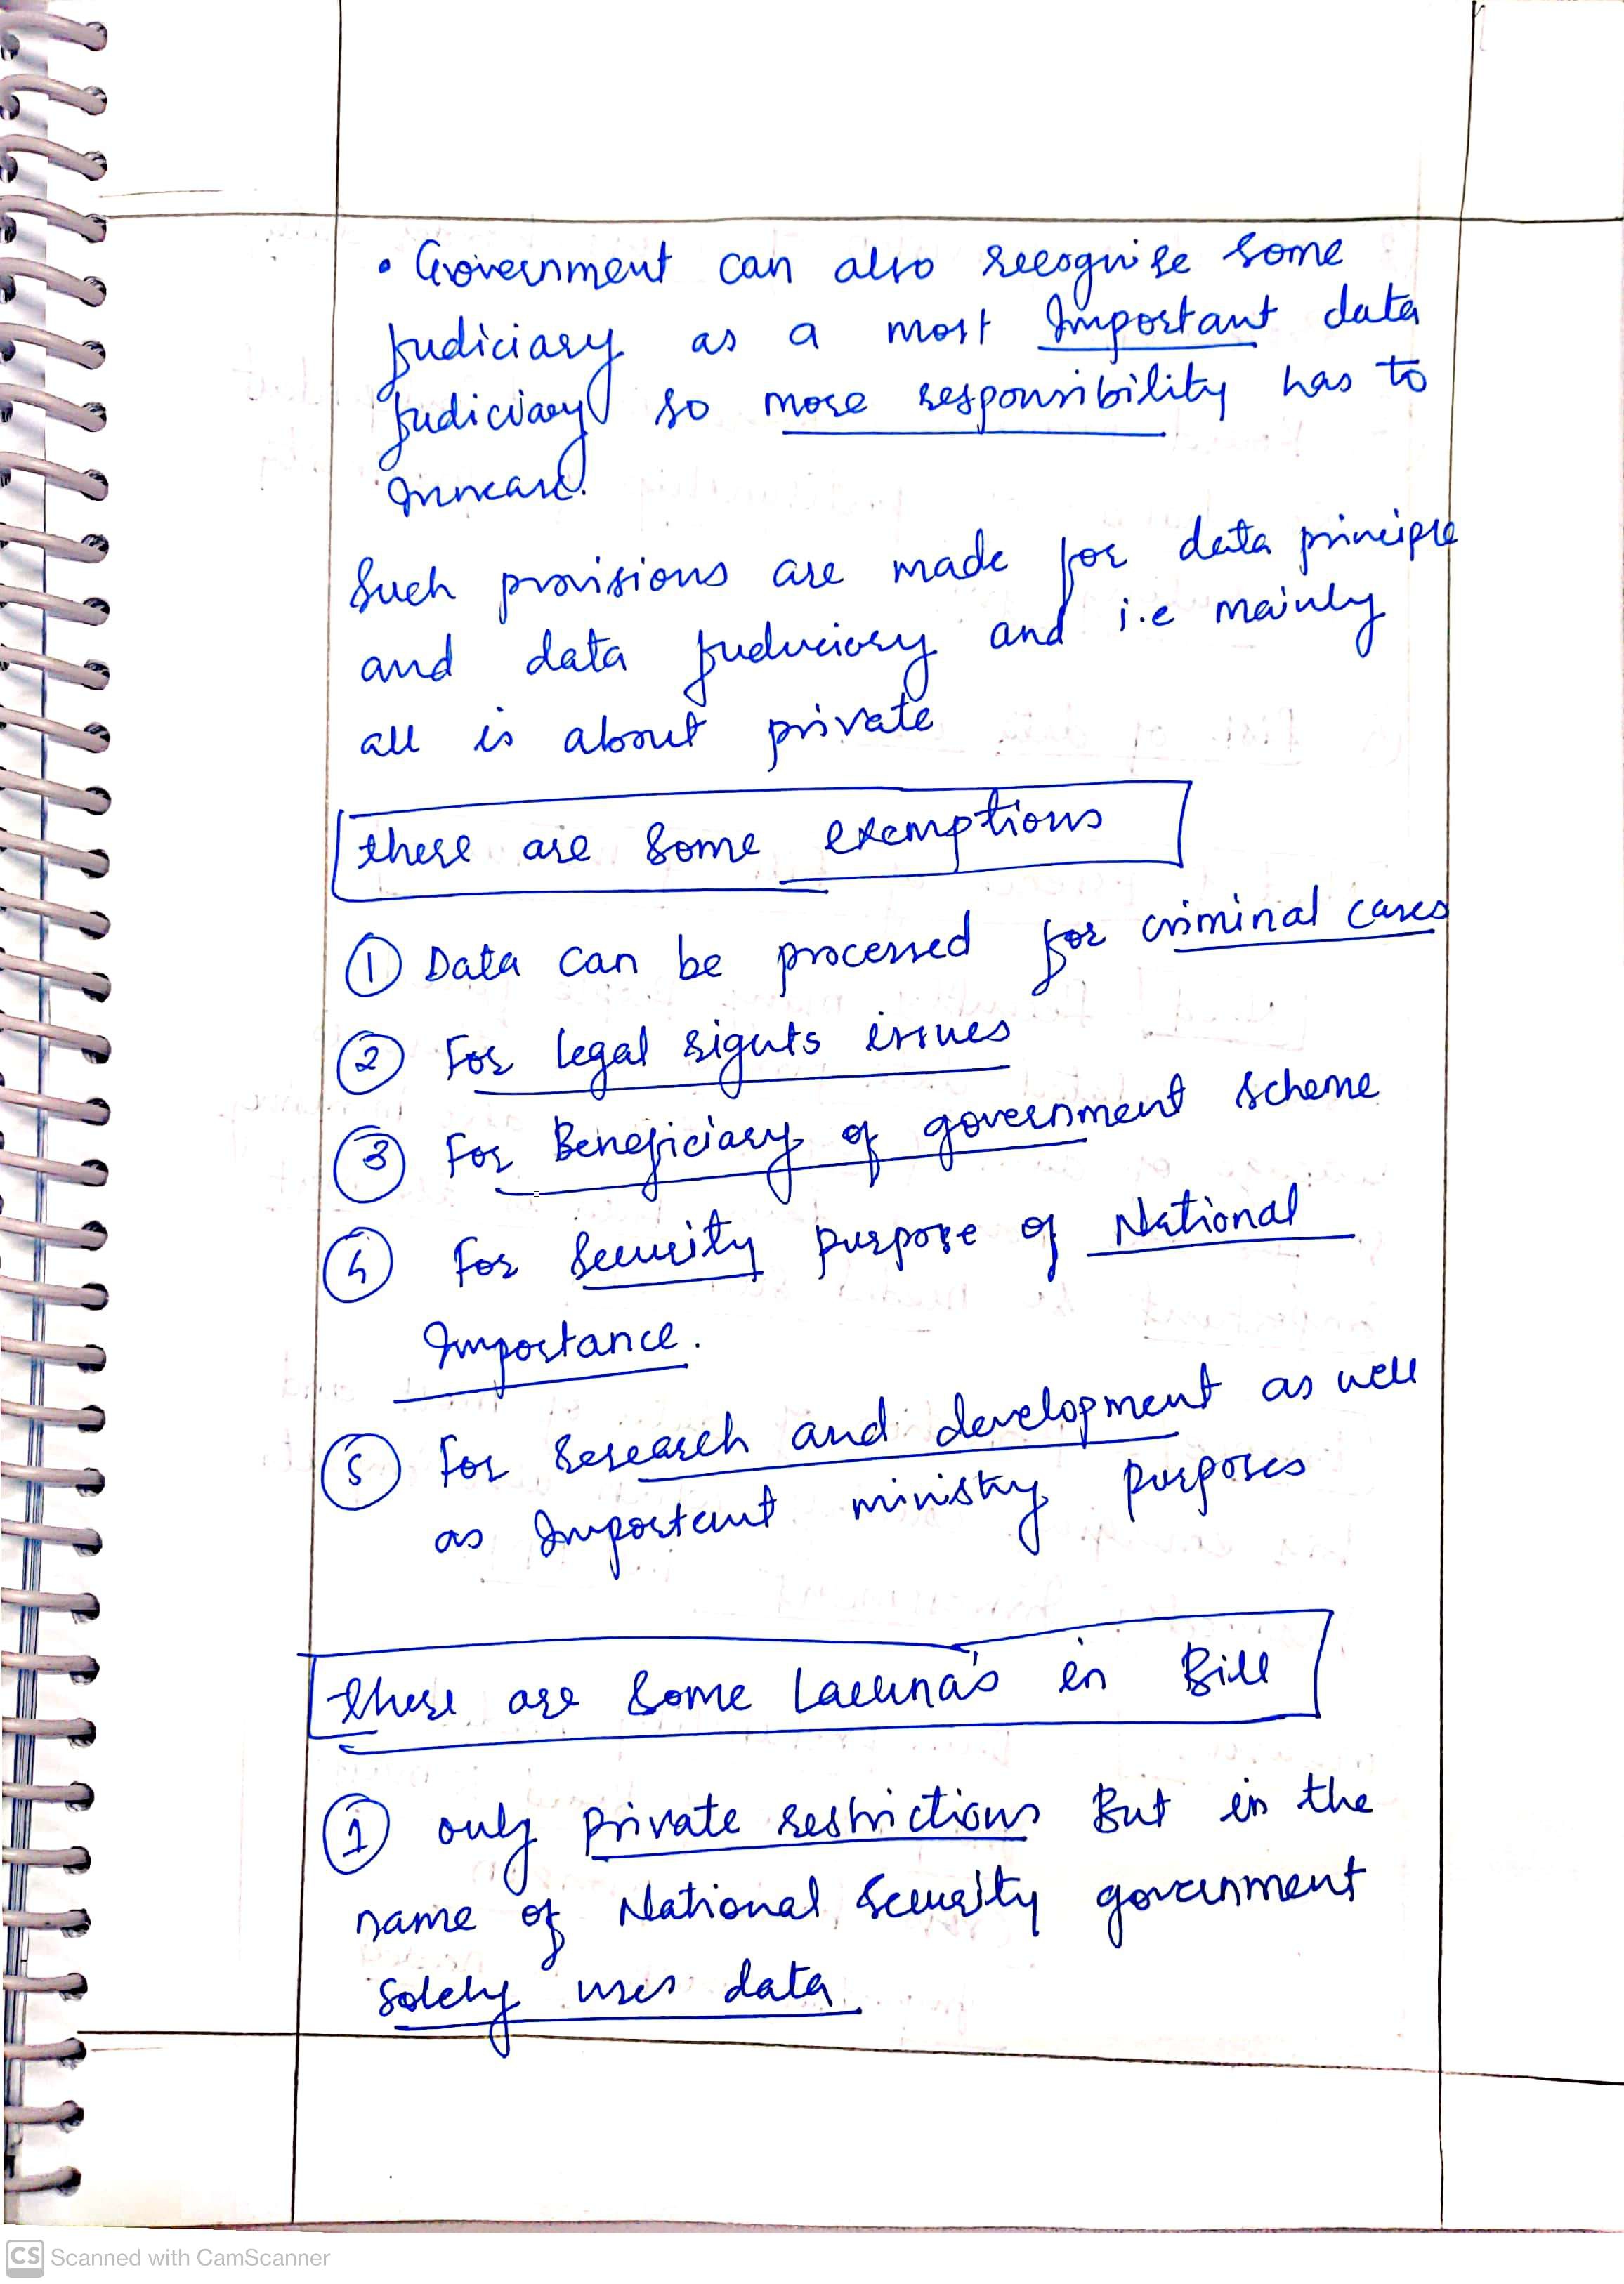 • Government can also recognise some
fudiciary as a most Important data
fudiciary so more responsibility has to
Increase.
Such provisions are made for data principle
and data fuduciory and i.e mainly
all is about private
there are some exemptions
① Data can be processed for criminal cases
② For legal rights issues
③ For Beneficiary of government scheme
④ For Security purpose of National
Importance.
⑤ For research and development as well
as Important ministry purposes
there are some Lacuna's in Bill
① only private restrictions But in the
name of National Security government
solely uses data
CS Scanned with CamScanner